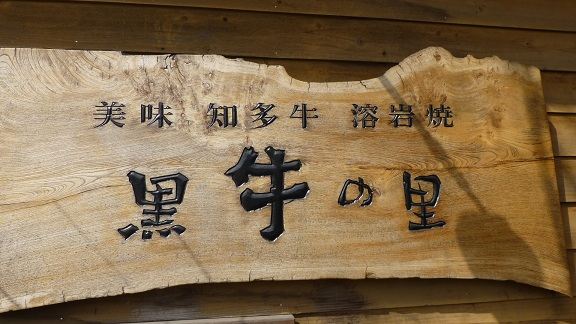 美味 知多牛 溶岩焼
黒牛の里